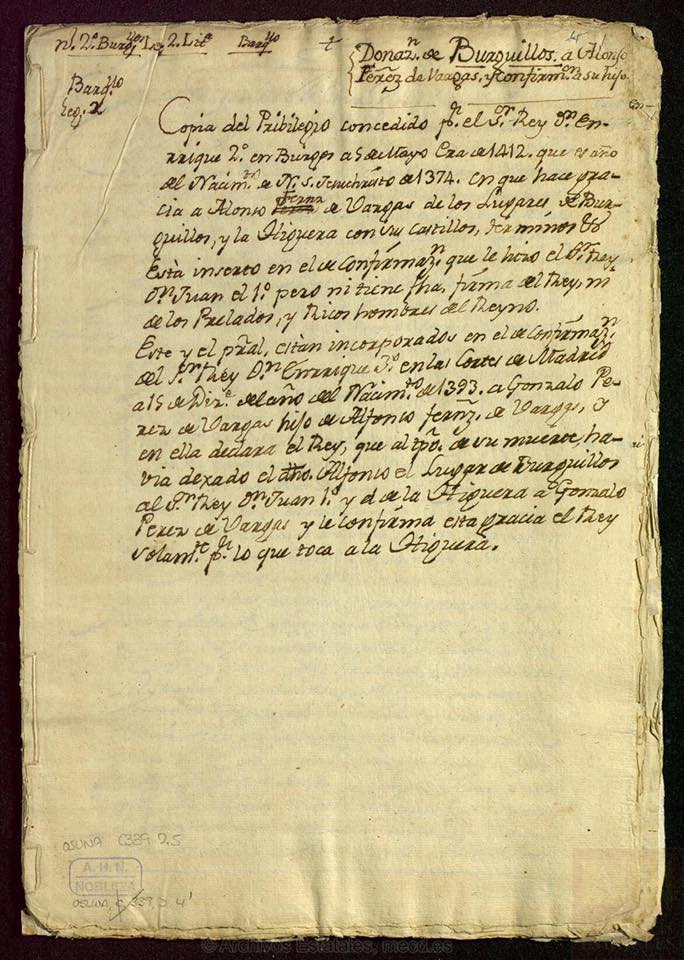 nº 2º Burg.ᵒˢ Leg. 2. Litª
Burg.ˡˡᵒ
Donaz.ⁿ de Burguillos. a Alonso
Perez de Vargas, y confirm.ᵒⁿ a su hijo.
Burg.ˡˡᵒ
Leg. 2
Copia del Pribilegio concedido p.ʳ el S.ʳ Rey Dⁿ. En-
rrique 2º. en Burgos a 5 de Mayo Era de 1412. que es año
del Nacim.ᵗᵒ de N. S. Jesuchristo de 1374. en que hace gra-
cia a Alonso Fernz de Vargas de los Lugares de Bur-
guillos, y la Higuera con sus castillos, terminos &ª
Està inserto en el de Confirmaz.ⁿ que le hizo el S.ʳ Rey
Dⁿ. Juan el 1º. pero ni tiene fha, firma del Rey, ni
de los Prelados, y Ricos hombres del Reyno.
Este y el pral, estàn incorporados en el de Confirmaz.ⁿ
del S.ʳ Rey Dⁿ. Enrrique 3º. en las Cortes de Madrid
a 15 de Diz.ᵉ del año del Nacim.ᵗᵒ de 1393. a Gonzalo Pe-
rez de Vargas hijo de Alfonso fernz. de Vargas, y
en ella declara el Rey, que al tpo. de su muerte, ha-
via dexado el dho. Alfonso el Lugar de Burguillos
al S.ʳ Rey Dⁿ. Juan 1º. y el de la Higuera a Gonzalo
Perez de Vargas y le confirma esta gracia el Rey
solam.ᵗᵉ p.ʳ lo que toca a la Higuera.
OSUNA C339 D.5
A. H. N.
NOBLEZA
OSUNA, C 339, D 4'
© Archivos Estatales, mecd.es